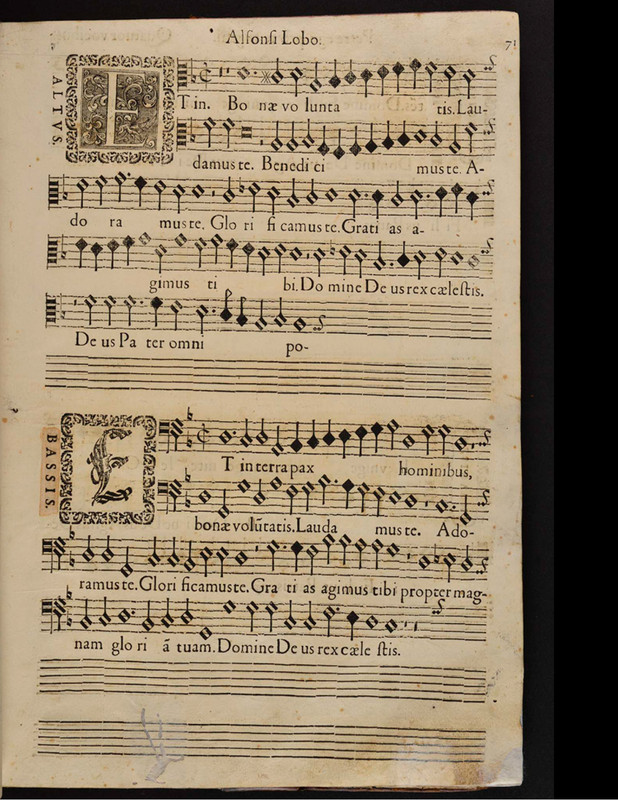 Alfonsi Lobo.
71
ALTVS.
ET in. Bo næ vo lunta tis. Lau-
damus te. Benedi ci mus te. A-
do ra mus te. Glo ri fi camus te. Grati as a-
gimus ti bi. Do mine De us rex cælestis.
De us Pa ter omni po-
BASSIS.
ET in terra pax hominibus,
bonæ volūtatis. Lauda mus te. Ado-
ramus te. Glori ficamus te. Gra ti as agimus tibi propter mag-
nam glo ri ā tuam. Domine De us rex cæle stis.